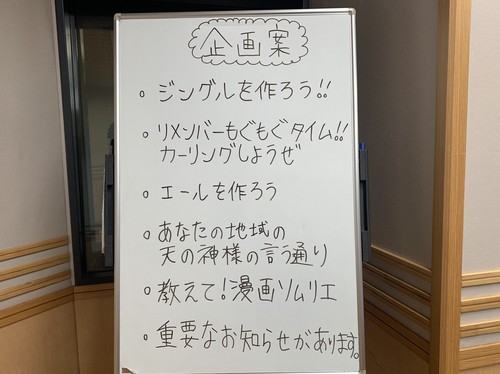 企画案
○ ジングルを作ろう!!
○ リメンバーもぐもぐタイム!!
カーリングしようぜ
○ エールを作ろう
○ あなたの地域の
天の神様の言う通り
○ 教えて!漫画ソムリエ
○ 重要なお知らせがあります。